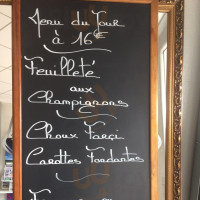 Menu du Jour
à 16€
Feuilleté
aux
Champignons
Choux Farçi
Carottes Fondantes